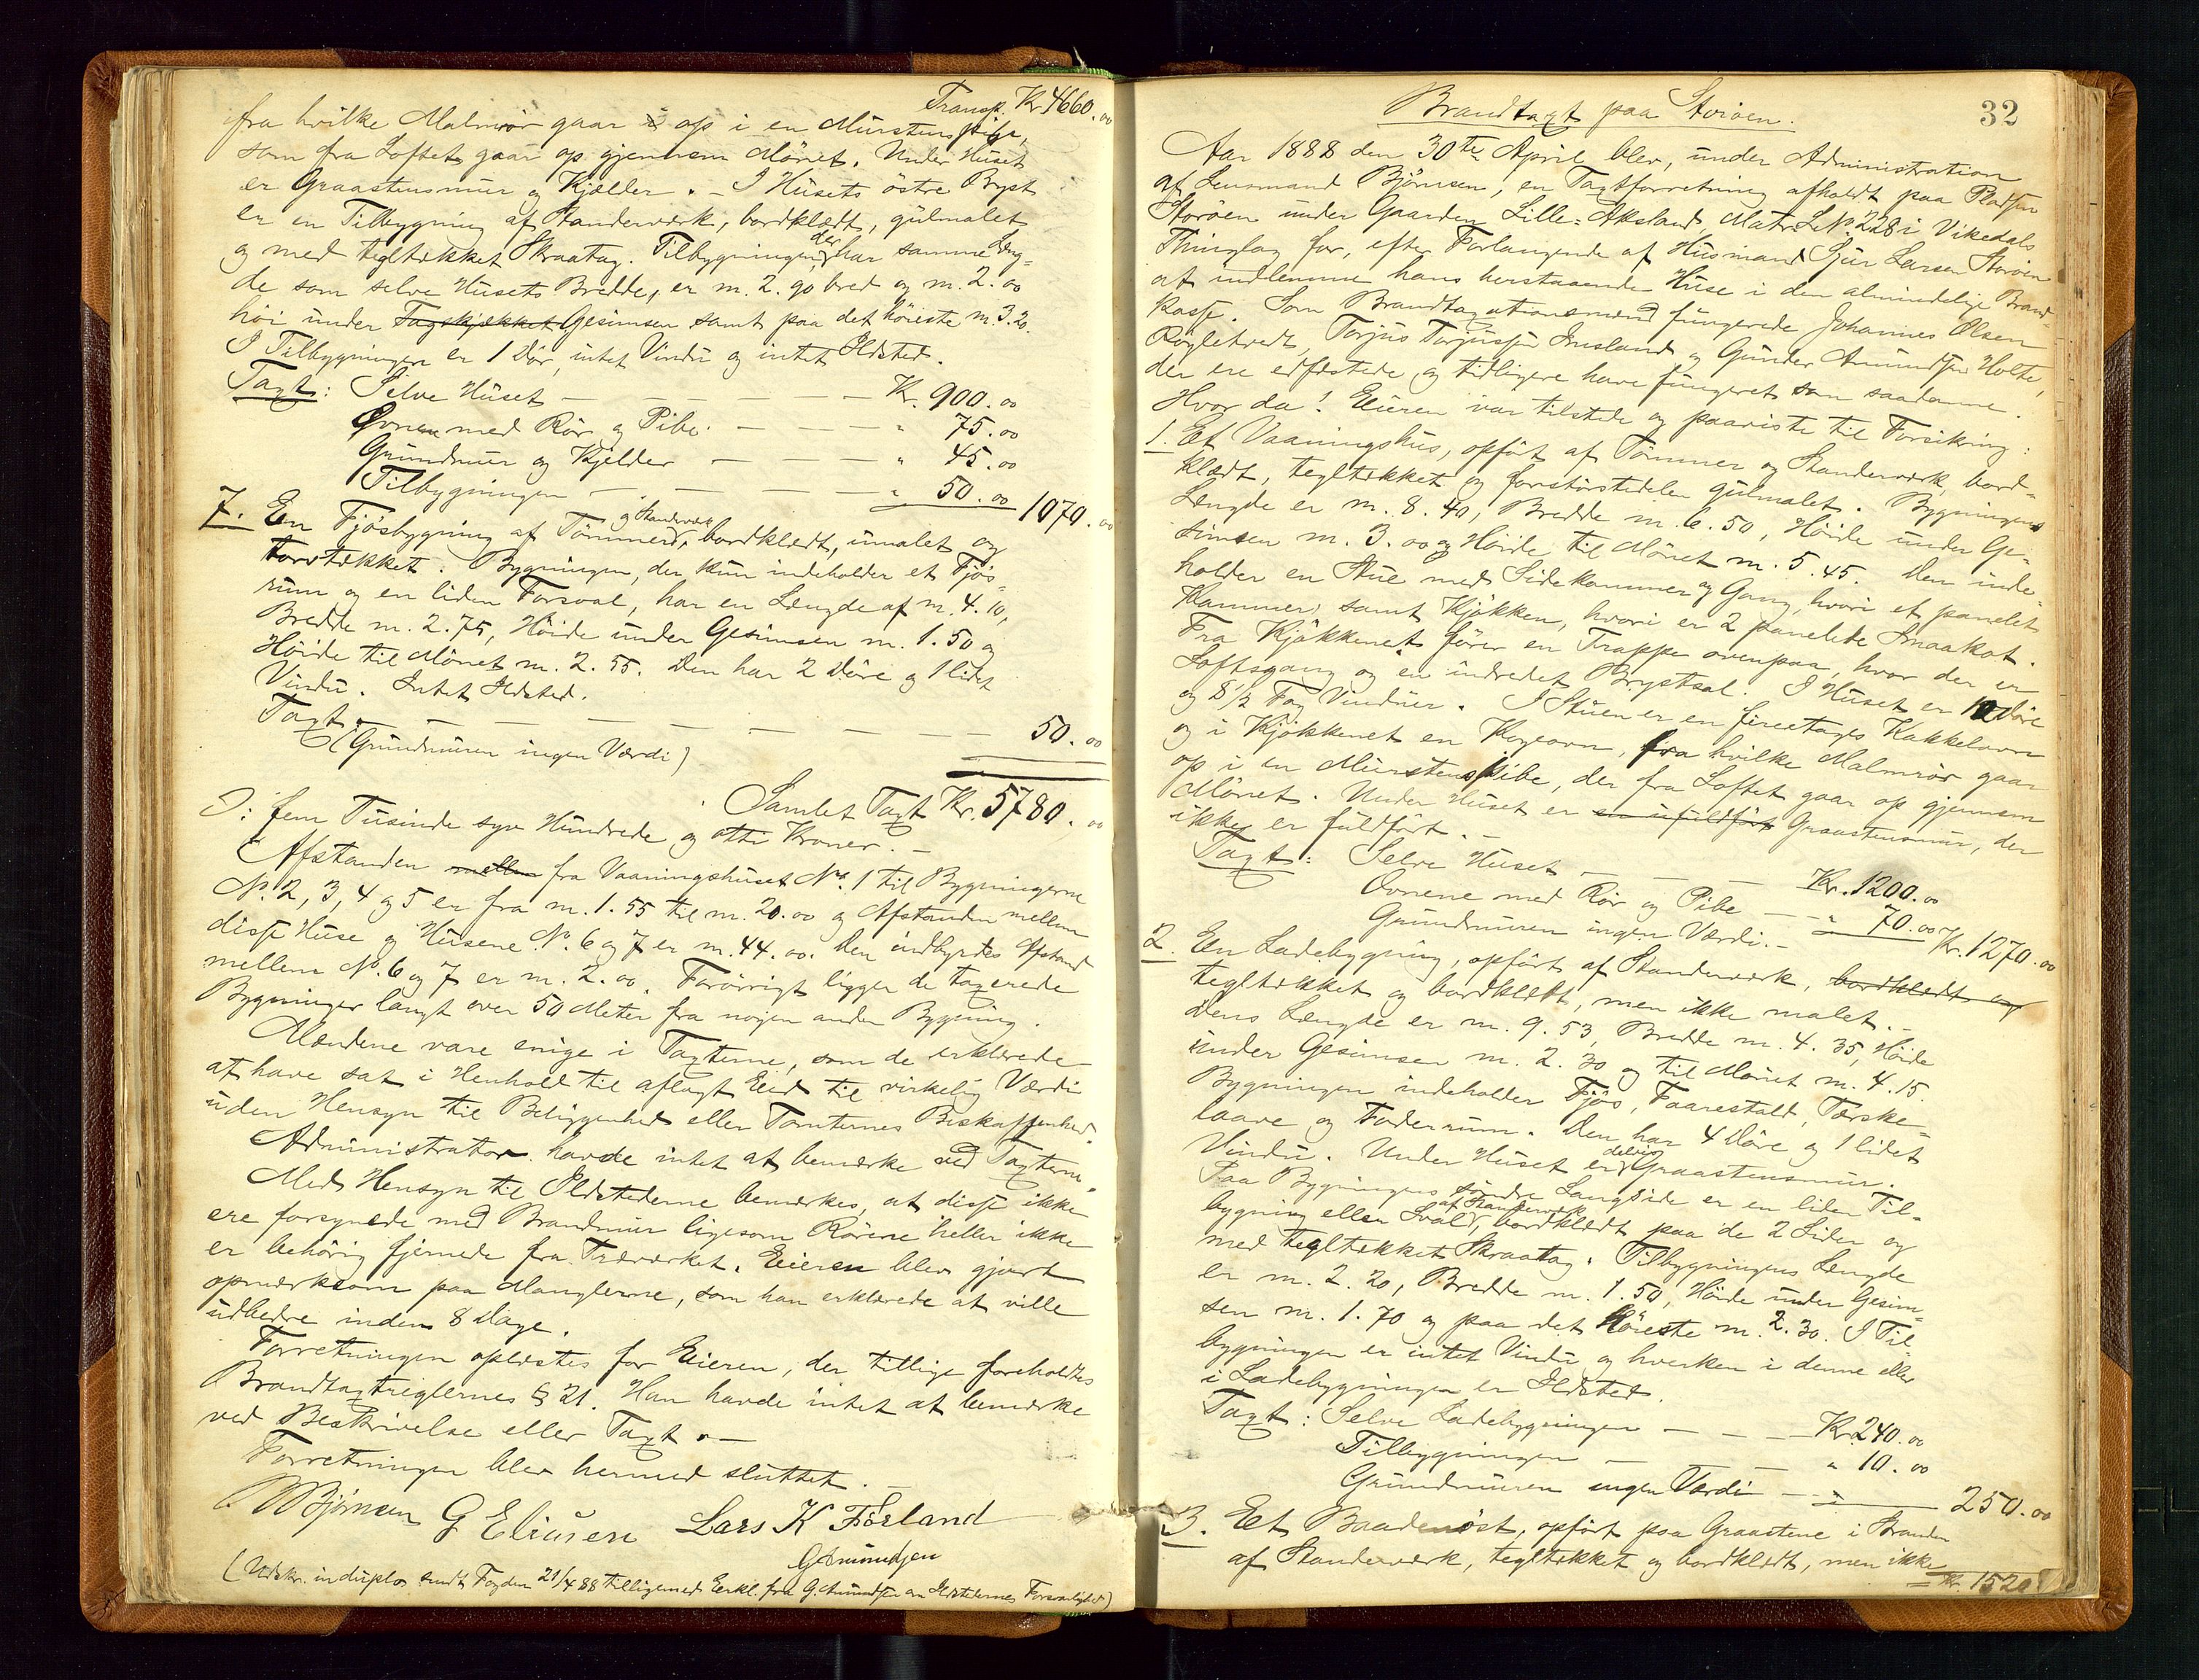 Transp. Kr 4660.00
fra hvilke Malmrör gaar op i en Murstenspibe,
som fra Loftet gaar op gjennem Mönet. Under Huset
er Graastensmur og Kjelder. - I Husets östre Bryst
er en Tilbygning af Standerværk, bordklædt, gulmalet
og med tegltækket Skraatag. Tilbygningen, der har samme Læng-
de som selve Husets Bredde, er m. 2.90 bred og m. 2.00
höi under Tagskjækket Gesimsen samt paa det höieste m. 3.20.
I Tilbygningen er 1 Dör, intet Vindu og intet Ildsted.
Taxt: Selve Huset — — — — Kr. 900.00
Ovnen med Rör og Pibe — — — " 75.00
Grundmur og Kjelder — — — " 45.00
Tilbygningen — — — — " 50.00 1070.00
7. En Fjösbygning af Tömmer og Standerværk, bordklædt, umalet og
torvtækket. Bygningen, der kun indeholder et Fjös-
rum og en liden Forsval, har en Længde af m. 4.10,
Bredde m. 2.75, Höide under Gesimsen m. 1.50 og
Höide til Mönet m. 2.55. Den har 2 Döre og 1 lidet
Vindu. Intet Ildsted.
Taxt — — — — — — — 50.00
(Grundmuren ingen Værdi)
Samlet Taxt Kr. 5780.00
ɔ: fem Tusinde syv Hundrede og otti Kroner. -
Afstanden mellem fra Vaaningshuset No. 1 til Bygningerne
No. 2, 3, 4 og 5 er fra m. 1.55 til m. 20.00 og Afstanden mellem
disse Huse og Husene No. 6 og 7 er m. 44.00. Den indbyrdes Afstand
mellem No. 6 og 7 er m. 2.00. Forövrigt ligger de taxerede
Bygninger langt over 50 Meter fra nogen anden Bygning.
Mændene vare enige i Taxterne, som de erklærede
at have sat i Henhold til aflagt Eed til virkelig Værdi
uden Hensyn til Beliggenhed eller Tomternes Beskaffenhed.
Administrator havde intet at bemærke ved Taxterne.
Med Hensyn til Ildstederne bemærkes, at disse ikke
ere forsynede med Brandmur ligesom Rörene heller ikke
er behörig fjernede fra Træværket. Eieren blev gjort
opmærksom paa Manglerne, som han erklærede at ville
udbedre inden 8 Dage.
Forretningen oplæstes for Eieren, der tillige foreholdtes
Brandtaxtreglernes § 21. Han havde intet at bemærke
ved Beskrivelse eller Taxt. -
Forretningen blev hermed sluttet. -
Björnsen G Eliasen Lars K Förland
G Amundsen
(Udskr. in duplo sendt Fogden 21/4 88 tilligemed Erkl. fra G. Amundsen om Ildstedernes Forsvarlighed)
32
Brandtaxt paa Storöen.
Aar 1888 den 30te April blev, under Administration
af Lensmand Björnsen, en Taxtforretning afholdt paa Pladsen
Storöen under Gaarden Lille-Aksland, Matr. L. No. 228 i Vikedals
Thinglag for, efter Forlangende af Husmand Sjur Larsen Storöen
at indlemme hans herstaaende Huse i den almindelige Brand-
kasse. Som Brandtaxationsmænd fungerede Johannes Olsen
Rögletvedt, Torjus Torjussen Imsland og Gunder Amundsen Holte,
der ere edfæstede og tidligere have fungeret som saadanne.
Hvor da! Eieren var tilstede og paaviste til Forsikring:
1. Et Vaaningshus, opfört af Tömmer og Standerværk, bord-
klædt, tegltækket og forstörstedelen gulmalet. Bygningens
Længde er m. 8.40, Bredde m. 6.50, Höide under Ge-
simsen m. 3.00 og Höide til Mönet m. 5.45. Den inde-
holder en Stue med Sidekammer og Gang, hvori et panelet
Kammer, samt Kjökken, hvori er 2 panelede Smaakot.
Fra Kjökkenet förer en Trappe ovenpaa, hvor der er
Loftsgang og en indredet Brystsal. I Huset er 10 Döre
og 8 1/2 Fag Vinduer. I Stuen er en fireetages Kakkelovn
og i Kjökkenet en Kogeovn, fra hvilke Malmrör gaar
op i en Murstenspibe, der fra Loftet gaar op gjennem
Mönet. Under Huset er en ufuldfört Graastensmur, der
ikke er fuldfört. -
Taxt: Selve Huset — — — Kr. 1200.00
Ovnene med Rör og Pibe — — " 70.00 Kr. 1270.00
Grundmuren ingen Værdi. -
2. En Ladebygning, opfört af Standerværk, bordklædt og
tegltækket og bordklædt, men ikke malet. -
Dens Længde er m. 9.53, Bredde m. 4.35, Höide
under Gesimsen m. 2.30 og til Mönet m. 4.15.
Bygningen indeholder Fjös, Faarestald, Tærske-
laave og Foderrum. Den har 4 Döre og 1 lidet
Vindu. Under Huset er delvis Graastensmur.
Paa Bygningens söndre Langside er en liden Til-
bygning eller Sval af Standerværk, bordklædt paa de 2 Sider og
med tegltækket Skraatag. Tilbygningens Længde
er m. 2.20, Bredde m. 1.50, Höide under Gesim-
sen m. 1.70 og paa det höieste m. 2.30. I Til-
bygningen er intet Vindu og hverken i denne eller
i Ladebygningen er Ildsted.
Taxt: Selve Ladebygningen — — — Kr. 240.00
Tilbygningen — — " 10.00
Grundmuren ingen Værdi — " 250.00
3. Et Baadenöst, opfört paa Graastene i Stranden
af Standerværk, tegltækket og bordklædt, men ikke
Kr. 1520